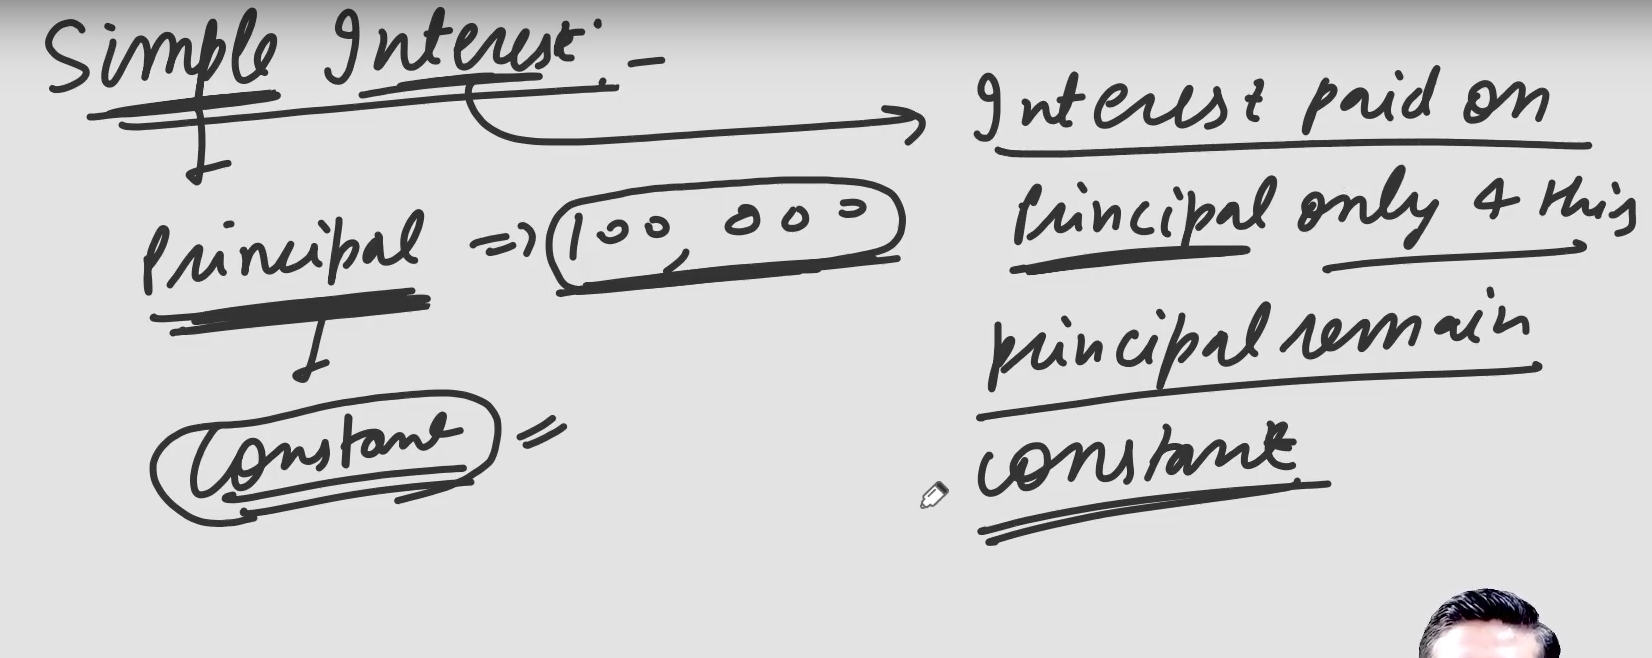 Simple Interest :-
Principal => 100,000
Constant =
Interest paid on
Principal only & this
principal remain
constant